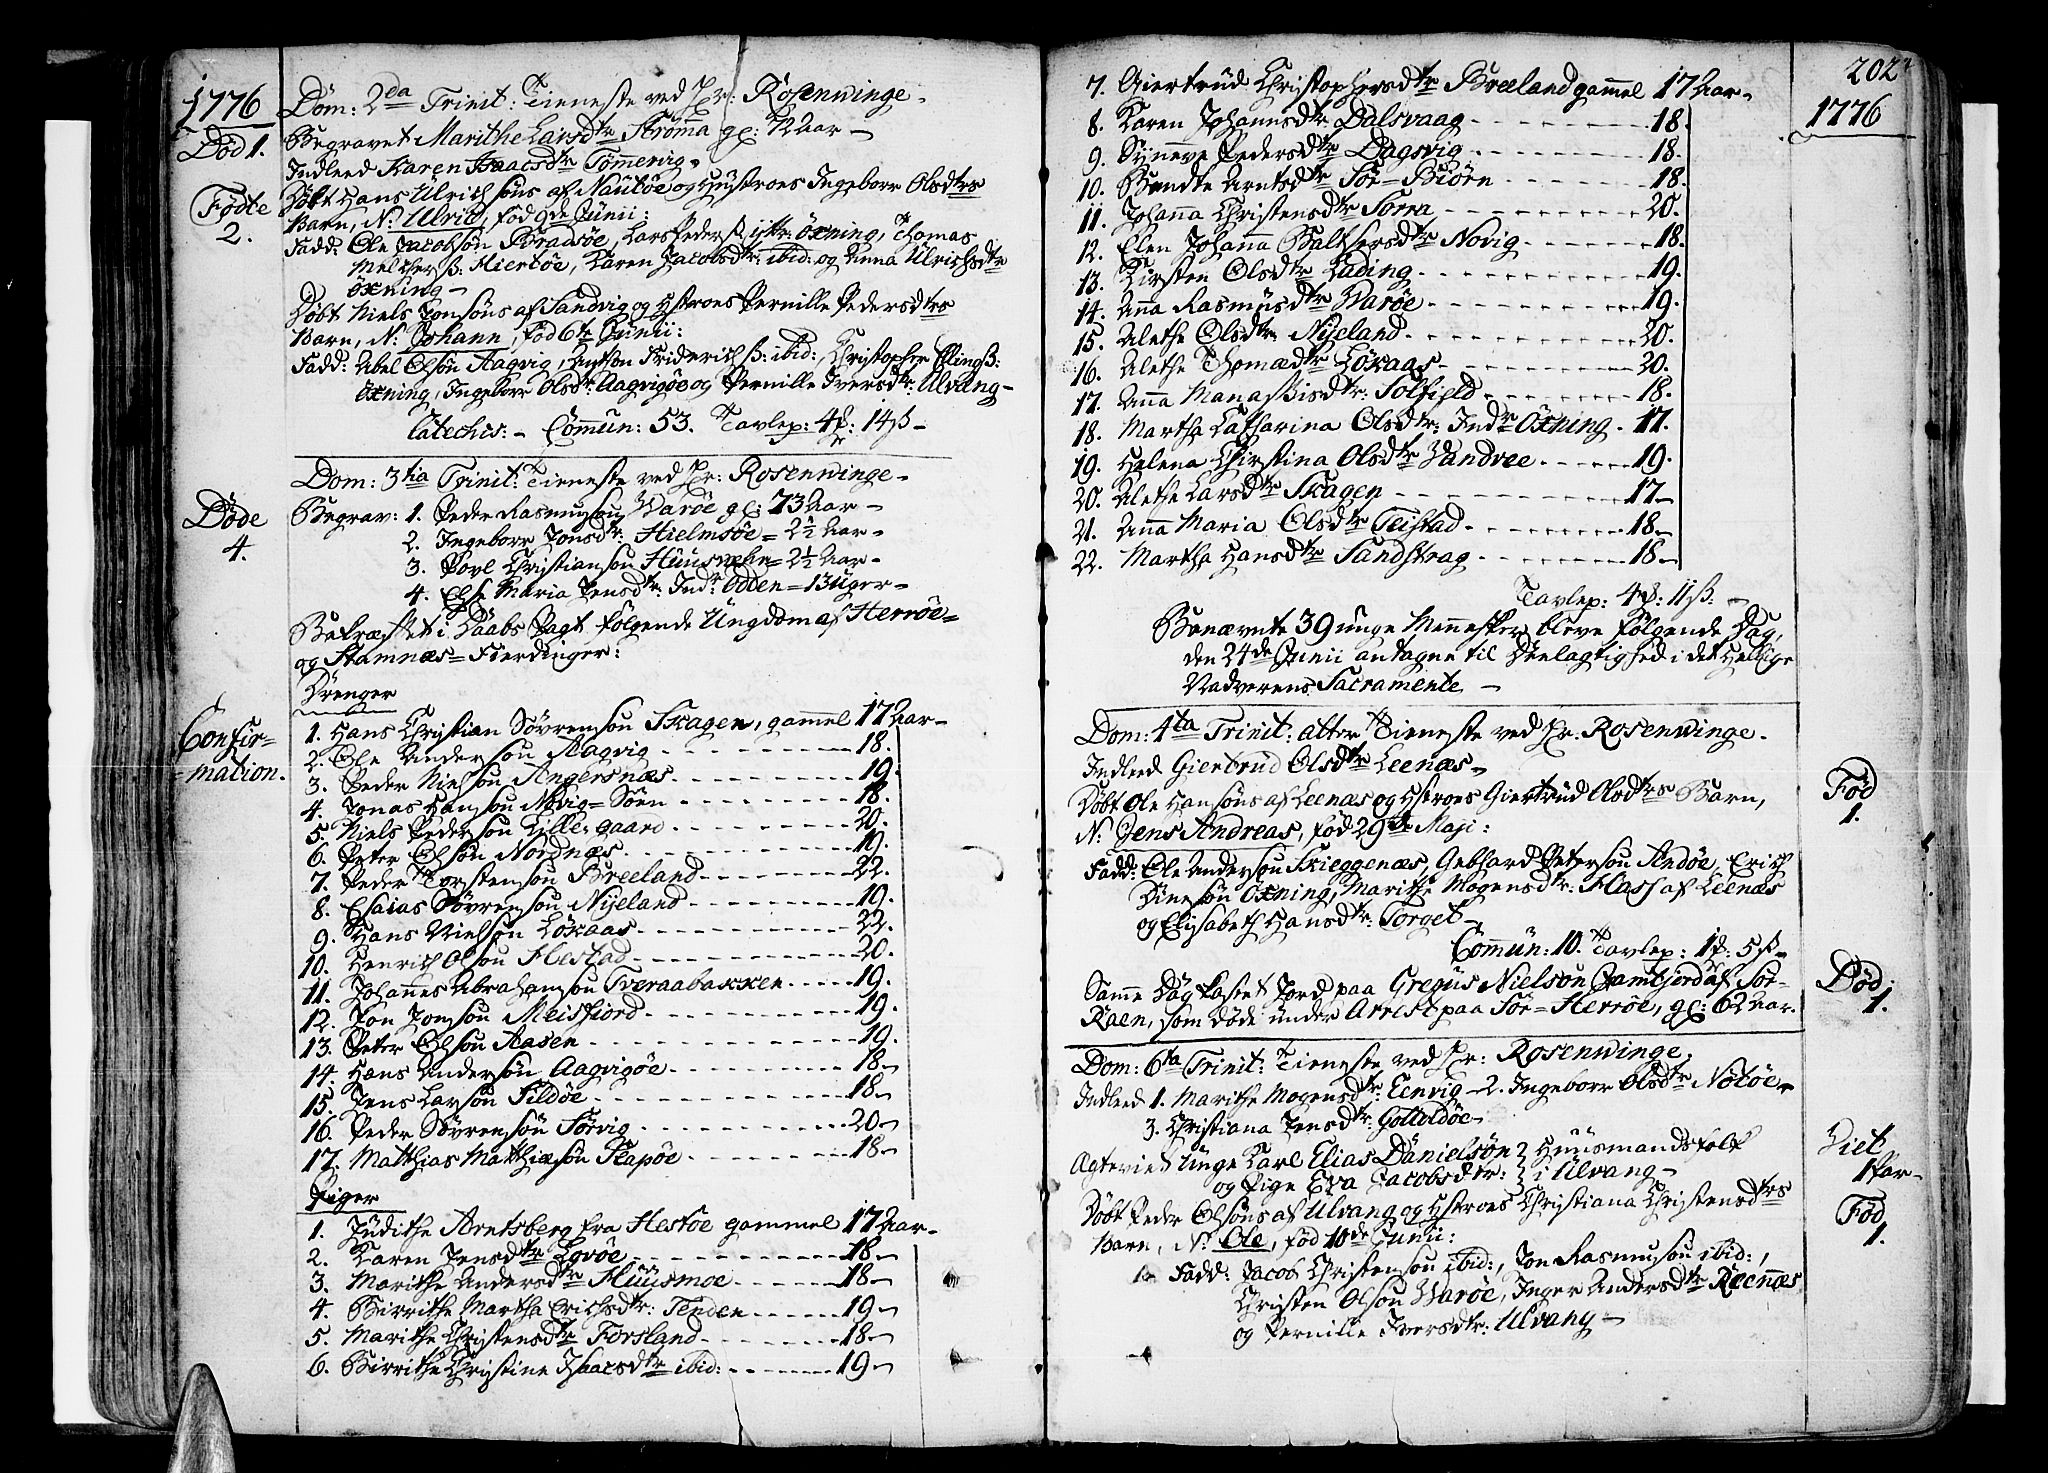 1776
Død 1.
Dom: 2da Trinit: Tieneste ved Hr: Rosenwinge.
Begravet Marithe Larsdtr Strømma gl: 72 Aar
Indleed Karen Isaacsdtr Tømervig.
Fødte
2.
Døbt Hans Ulrichsøns af Nautøe og Hustroes Ingeborr Olsdtrs
Barn, N: Ulric, fød 9de Junii:
Fadd: Ole Jacobsøn Brasøe, Lars Peders ß yttr: Öxning, Thomas
Melcher ß: Hiertøe, Karen Jacobsdtr: ibid: og Anna Ulrichsdtr
Öxning
Døbt Niels Jonsøns af Sandvig og Hstroes Pernille Pedersdtrs
Barn, N: Johann, fød 6te Junii:
Fadd: Abel Olsøn Aagvig, Anthon Friderich ß: ibid:, Christopher Elling ß:
Öxning, Ingeborr Olsdtr: Aagvigøe og Pernille Iversdtr: Ulvang
Catechis: Commun: 53. Tavlep: 4 14ß
Dom: 3tia Trinit: Tieneste ved Hr: Rosenwinge
Døde
4.
Begrav: 1. Peder Rasmusøn Warøe gl: 73 Aar
2. Ingeborr Jonsdtr: Hielmsøe = 2½ Aar
3. Povl Christiansøn Huusvehn = 2½ Aar
4. Else Maria Jensdtr: Indr Odden = 13 Uger
Bekræftet i Daabs Pagt følgende Ungdom af Herrøe=
og Stamnæs= Fierdinger:
Confir-
mation.
Drenger
1. Hans Christian Søvrensøn Skagen, gammel 17 Aar
2. Ole Andersøn Aagvig 18.
3. Peder Nielsøn Angersnæs 19.
4. Jonas Hansøn Novig= Søen 18.
5. Niels Pedersøn Lille-gaard 20.
6. Peter Olsøn Nordnæs 19.
7. Peder Torstensøn Breeland 22.
8. Esaias Søvrensøn Nyeland 19.
9. Hans Nielsøn Løkaas 22.
10. Henrich Olsøn Hestad 20.
11. Johannes Abrahamsøn Tveraabakken 19.
12. Jon Jonsøn Meisfiord 19.
13. Peter Olsøn Aasen 19.
14. Hans Andersøn Aagvigøe 18
15. Jens Larsøn Sildøe 18
16. Peder Søvrensøn Sørvig 20
17. Matthias Matthiæsøn Skapøe 18
Piger
1. Judithe Arntsberg fra Hestøe gammel 17 Aar
2. Karen Jensdtr Lovøe 18
3. Marithe Andersdtr Huusmoe 18
4. Birrithe Martha Erichsdtr: Tenden 19
5. Marithe Christensdtr Forsland 18
6. Birrithe Christine Isaacsdtr ibid: 19
202
1776
7. Giertrud Christophersdtr Breeland gammel 17 Aar
8. Karen Johannsdtr Dalsvaag 18.
9. Synneve Pedersdtr Dagsvig 18.
10. Bendte Arntsdtr Sør= Biørn 18.
11. Johanna Christensdtr Sorra 20.
12. Elen Johanna Baltzersdtr Novig 18.
13. Kirsten Olsdtr Lading 19.
14. Anna Rasmusdtr Warøe 19.
15. Alethe Olsdtr Nyeland 20.
16. Alethe Thomædtr Løkaas 20.
17. Anna Manassisdtr: Solfield 18.
18. Martha Catharina Olsdtr: Indr Öxning 17.
19. Helena Christina Olsdtr Zandvee 19.
20. Alethe Larsdtr Skagen 17
21. Anna Maria Olsdtr Teistad 18
22. Martha Hansdtr Sandstrag 18
Tavlep: 4 11ß:
Benævnte 39 unge Mennesker bleve følgende Dag,
den 24de Junii antagne til Deelagtighed i det Hellige
Nadverens Sacramente
Dom: 4ta Trinit: atter Tieneste ved Hr: Rosenwinge.
Indleed Giertrud Olsdtr Leenæs
Fød
1.
Døbt Ole Hansøns af Leenæs og Hstroes Giertrud Olsdtrs Barn,
N: Jens Andreas, fød 29de Maji:
Fadd: Ole Andersøn Skieggenæs, Gebhard Petersøn Andøe, Erich
Dinesøn Öxning, Marithe Mogensdtr: Hass af Leenæs
og Elisabeth Hansdtr: Torget
Commun: 10. Tavlep: 1 5ß
Død:
1.
Samme Dag kastet Jord paa Gregus Nielsøn Jamtjord af Sør-
Raen, som døde under Arrest paa Sør= Herrøe, gl: 62 Aar.
Dom: 6ta Trinit: Tieneste ved Hr: Rosenwinge.
Indleed 1. Marithe Mogensdtr: Eenvig 2. Ingeborr Olsdtr Nøtøe
3. Christiana Jensdtr: Gottoldøe
Viet
1 Par
Ægteviet Unge Karl Elias Danielsøn Huusmandsfolk
og Pige Eva Jacobsdtr: i Ulvang
Fød
1.
Døbt Peder Olsøns af Ulvang og Hstroes Christiana Christensdtrs
Barn, N: Ole, fød 10de Junii:
Fadd: Jacob Christensøn ibid:, Jon Rasmusøn ibid:,
Christen Olsøn Warøe, Inger Andersdtr Reenæs
og Pernille Iversdtr: Ulvang